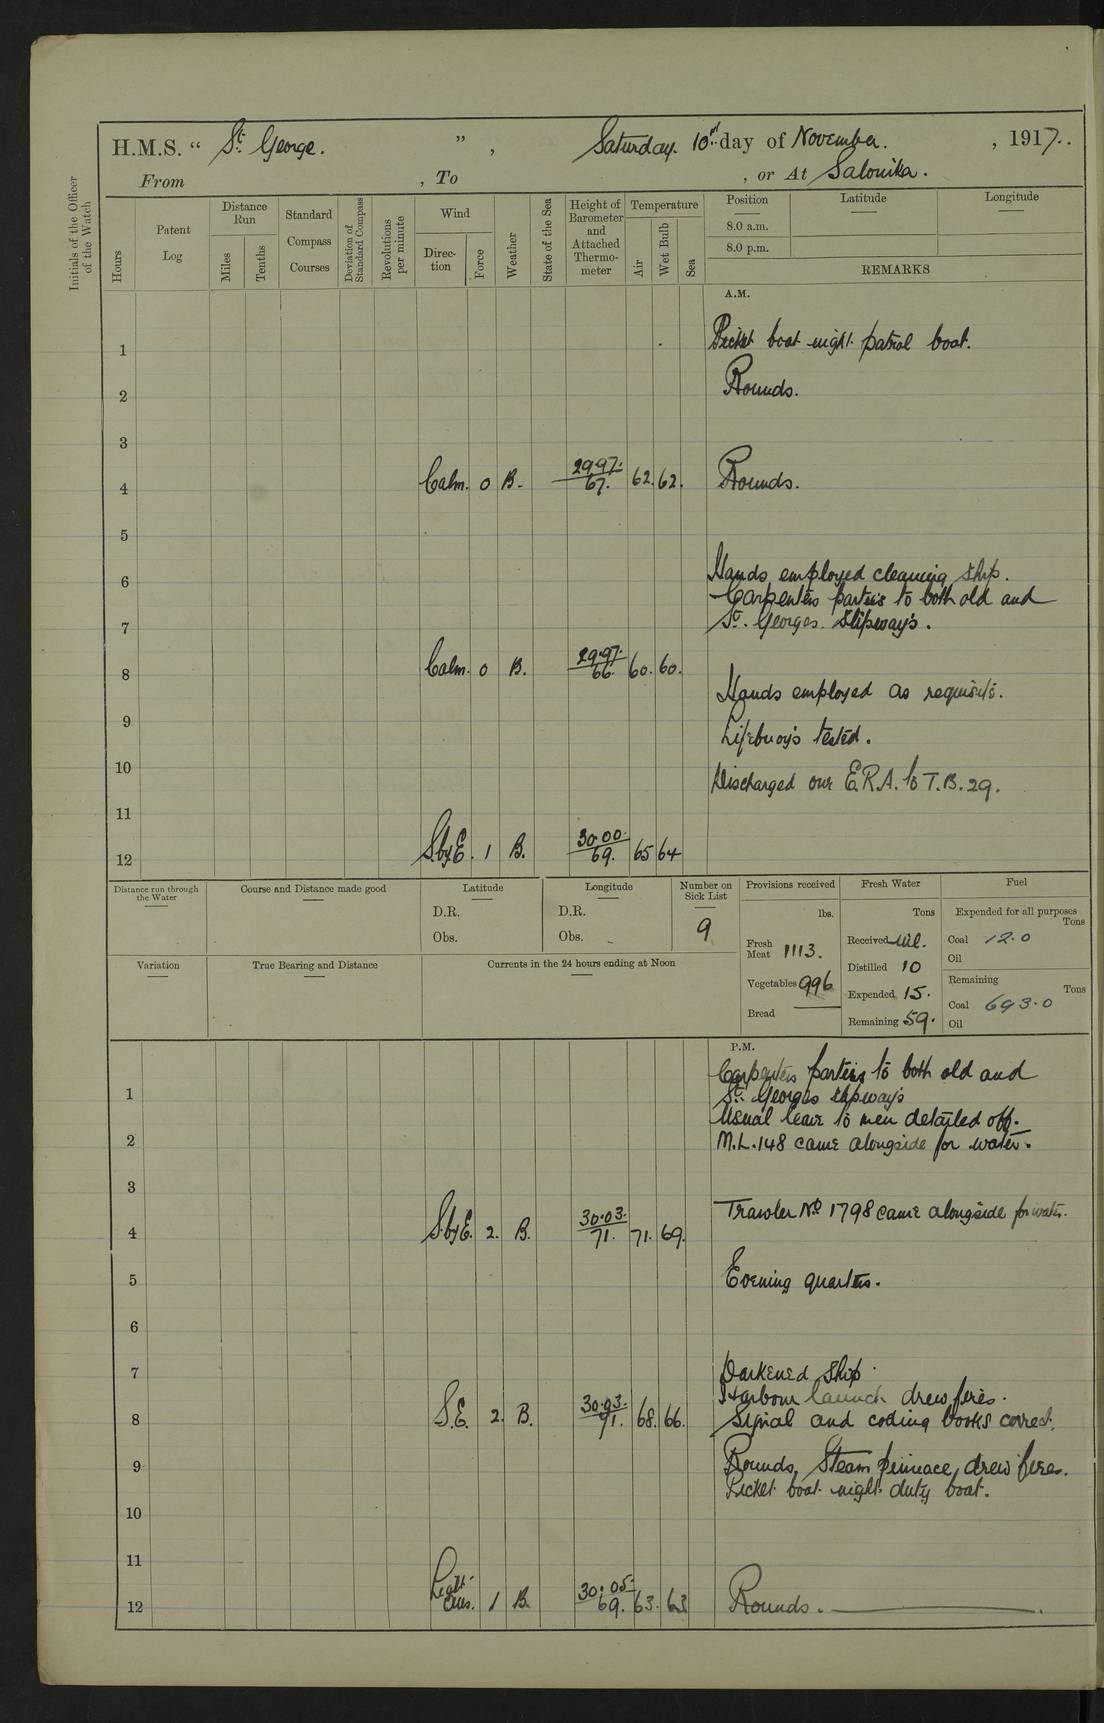 H.M.S. “ St George. ” , Saturday. 10rd day of November. , 1917..
From , To , or At Salonika.
Initials of the Officer of the Watch
Hours
Patent Log
Distance Run
Miles
Tenths
Standard Compass Courses
Deviation of Standard Compass
Revolutions per minute
Wind
Direction
Force
Weather
State of the Sea
Height of Barometer and Attached Thermometer
Temperature
Air
Wet Bulb
Sea
Position Latitude Longitude
8.0 a.m.
8.0 p.m.
REMARKS
A.M.
1 Picket boat night patrol boat.
2 Rounds.
3
4 Calm. 0 B. 29.97. 67. 62. 62. Rounds.
5
6 Hands employed cleaning ship.
Carpenters parties to both old and
7 St. Georges Slipway's.
8 Calm. 0 B. 29.97. 66. 60. 60.
Hands employed as requisite.
9 Lifebuoy's tested.
10 Discharged one E.R.A. to T.B. 29.
11
12 S.byE. 1 B. 30.00. 69. 65 64
Distance run through the Water
Course and Distance made good
Latitude
D.R.
Obs.
Longitude
D.R.
Obs.
Number on Sick List
9
Provisions received
lbs.
Fresh Meat 1113.
Vegetables 996
Bread
Fresh Water
Tons
Received Nil.
Distilled 10
Expended 15.
Remaining 59.
Fuel
Expended for all purposes
Tons
Coal 12.0
Oil
Remaining
Tons
Coal 693.0
Oil
Variation
True Bearing and Distance
Currents in the 24 hours ending at Noon
P.M.
Carpenters parties to both old and
1 St. Georges slipway's
Usual leave to men detailed off.
2 M.L. 148 came alongside for water.
3
Trawler No 1798 came alongside for water.
4 S.byE. 2. B. 30.03. 71. 71. 69.
5 Evening quarters.
6
7 Darkened ship.
Harbour launch drew fires.
8 S.E. 2. B. 30.03. 71. 68. 66. Signal and coding books correct.
9 Rounds, Steam pinnace, drew fires.
Picket boat night duty boat.
10
11
12 Light airs. 1 B. 30.05. 69. 63. 63 Rounds.